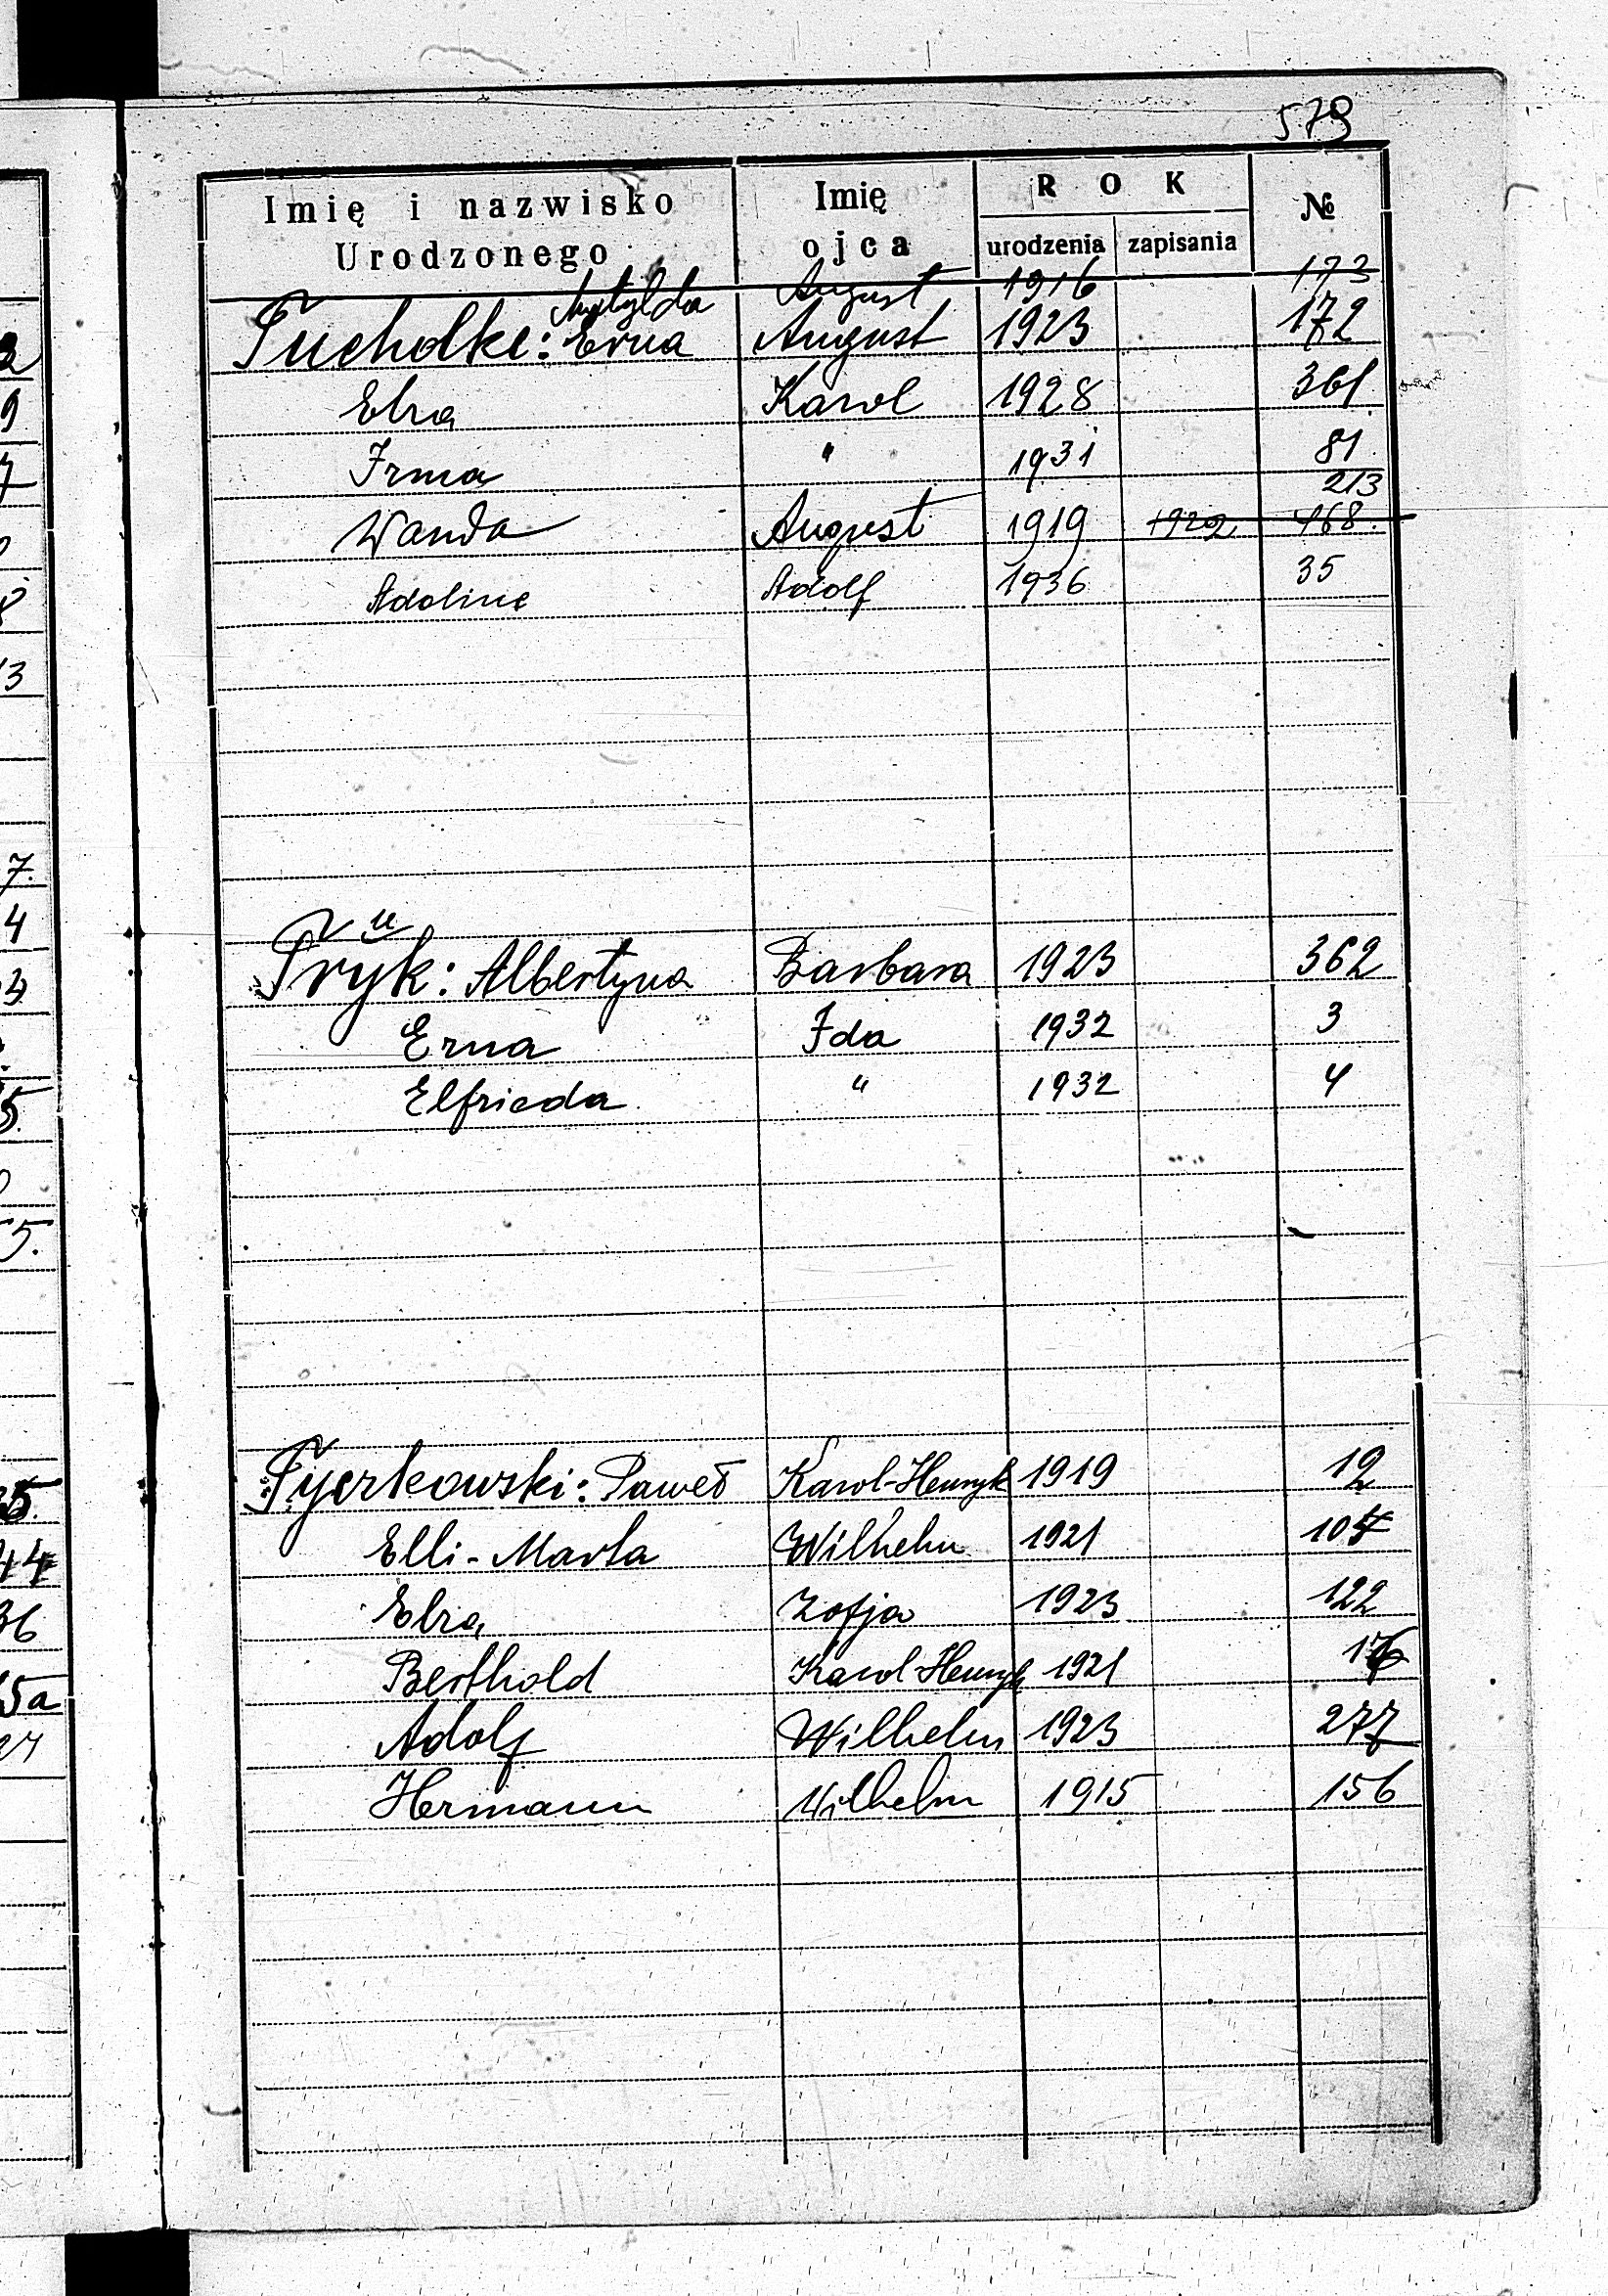 579
Imię i nazwisko Urodzonego | Imię ojca | ROK urodzenia | zapisania | №
Mytylda August 1916 173
Tucholke: Erna August 1923 172
Elza Karol 1928 361.
Irma " 1931 81.
213
Wanda August 1919 1929 468.
Adoline Adolf 1936 35
u
Tryk: Albertyna Barbara 1923 362
Erna Ida 1932 3
Elfrieda " 1932 4
Tyczkowski: Paweł Karol-Henryk 1919 12
Elli-Marta Wilhelm 1921 104
Elza Zofja 1923 122
Berthold Karol-Henryk 1921
Adolf Wilhelm 1923 277
Hermann Wilhelm 1915 156